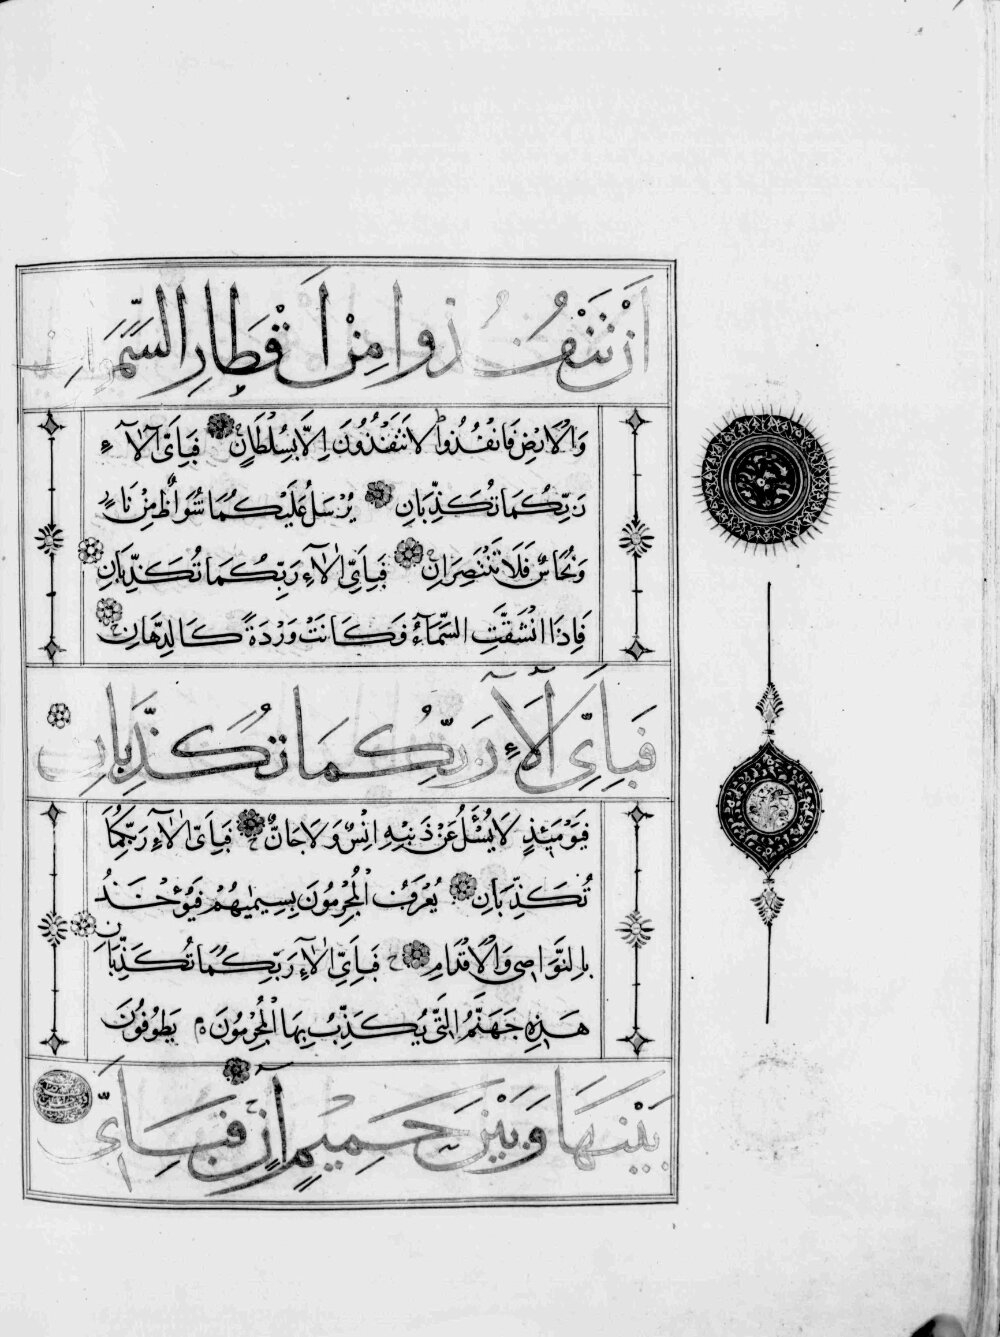 اَنْ تَنْفُذُوا مِنْ اَقْطَارِ السَّمٰوَاتِ
وَالْاَرْضِ فَانْفُذُوا لَا تَنْفُذُونَ اِلَّا بِسُلْطَانٍ فَبِاَيِّ اٰلَاۤءِ
رَبِّكُمَا تُكَذِّبَانِ يُرْسَلُ عَلَيْكُمَا شُوَاظٌ مِنْ نَارٍ
وَنُحَاسٌ فَلَا تَنْتَصِرَانِ فَبِاَيِّ اٰلَاۤءِ رَبِّكُمَا تُكَذِّبَانِ
فَاِذَا انْشَقَّتِ السَّمَاۤءُ فَكَانَتْ وَرْدَةً كَالدِّهَانِ
فَبِاَيِّ اٰلَاۤءِ رَبِّكُمَا تُكَذِّبَانِ
فَيَوْمَئِذٍ لَا يُسْـَٔلُ عَنْ ذَنْبِهِ اِنْسٌ وَلَا جَانٌّ فَبِاَيِّ اٰلَاۤءِ رَبِّكُمَا
تُكَذِّبَانِ يُعْرَفُ الْمُجْرِمُونَ بِسِيمٰيهُمْ فَيُؤْخَذُ
بِالنَّوَاصِي وَالْاَقْدَامِ فَبِاَيِّ اٰلَاۤءِ رَبِّكُمَا تُكَذِّبَانِ
هٰذِهِ جَهَنَّمُ الَّتِي يُكَذِّبُ بِهَا الْمُجْرِمُونَ يَطُوفُونَ
بَيْنَهَا وَبَيْنَ حَمِيمٍ اٰنٍ فَبِاَيِّ